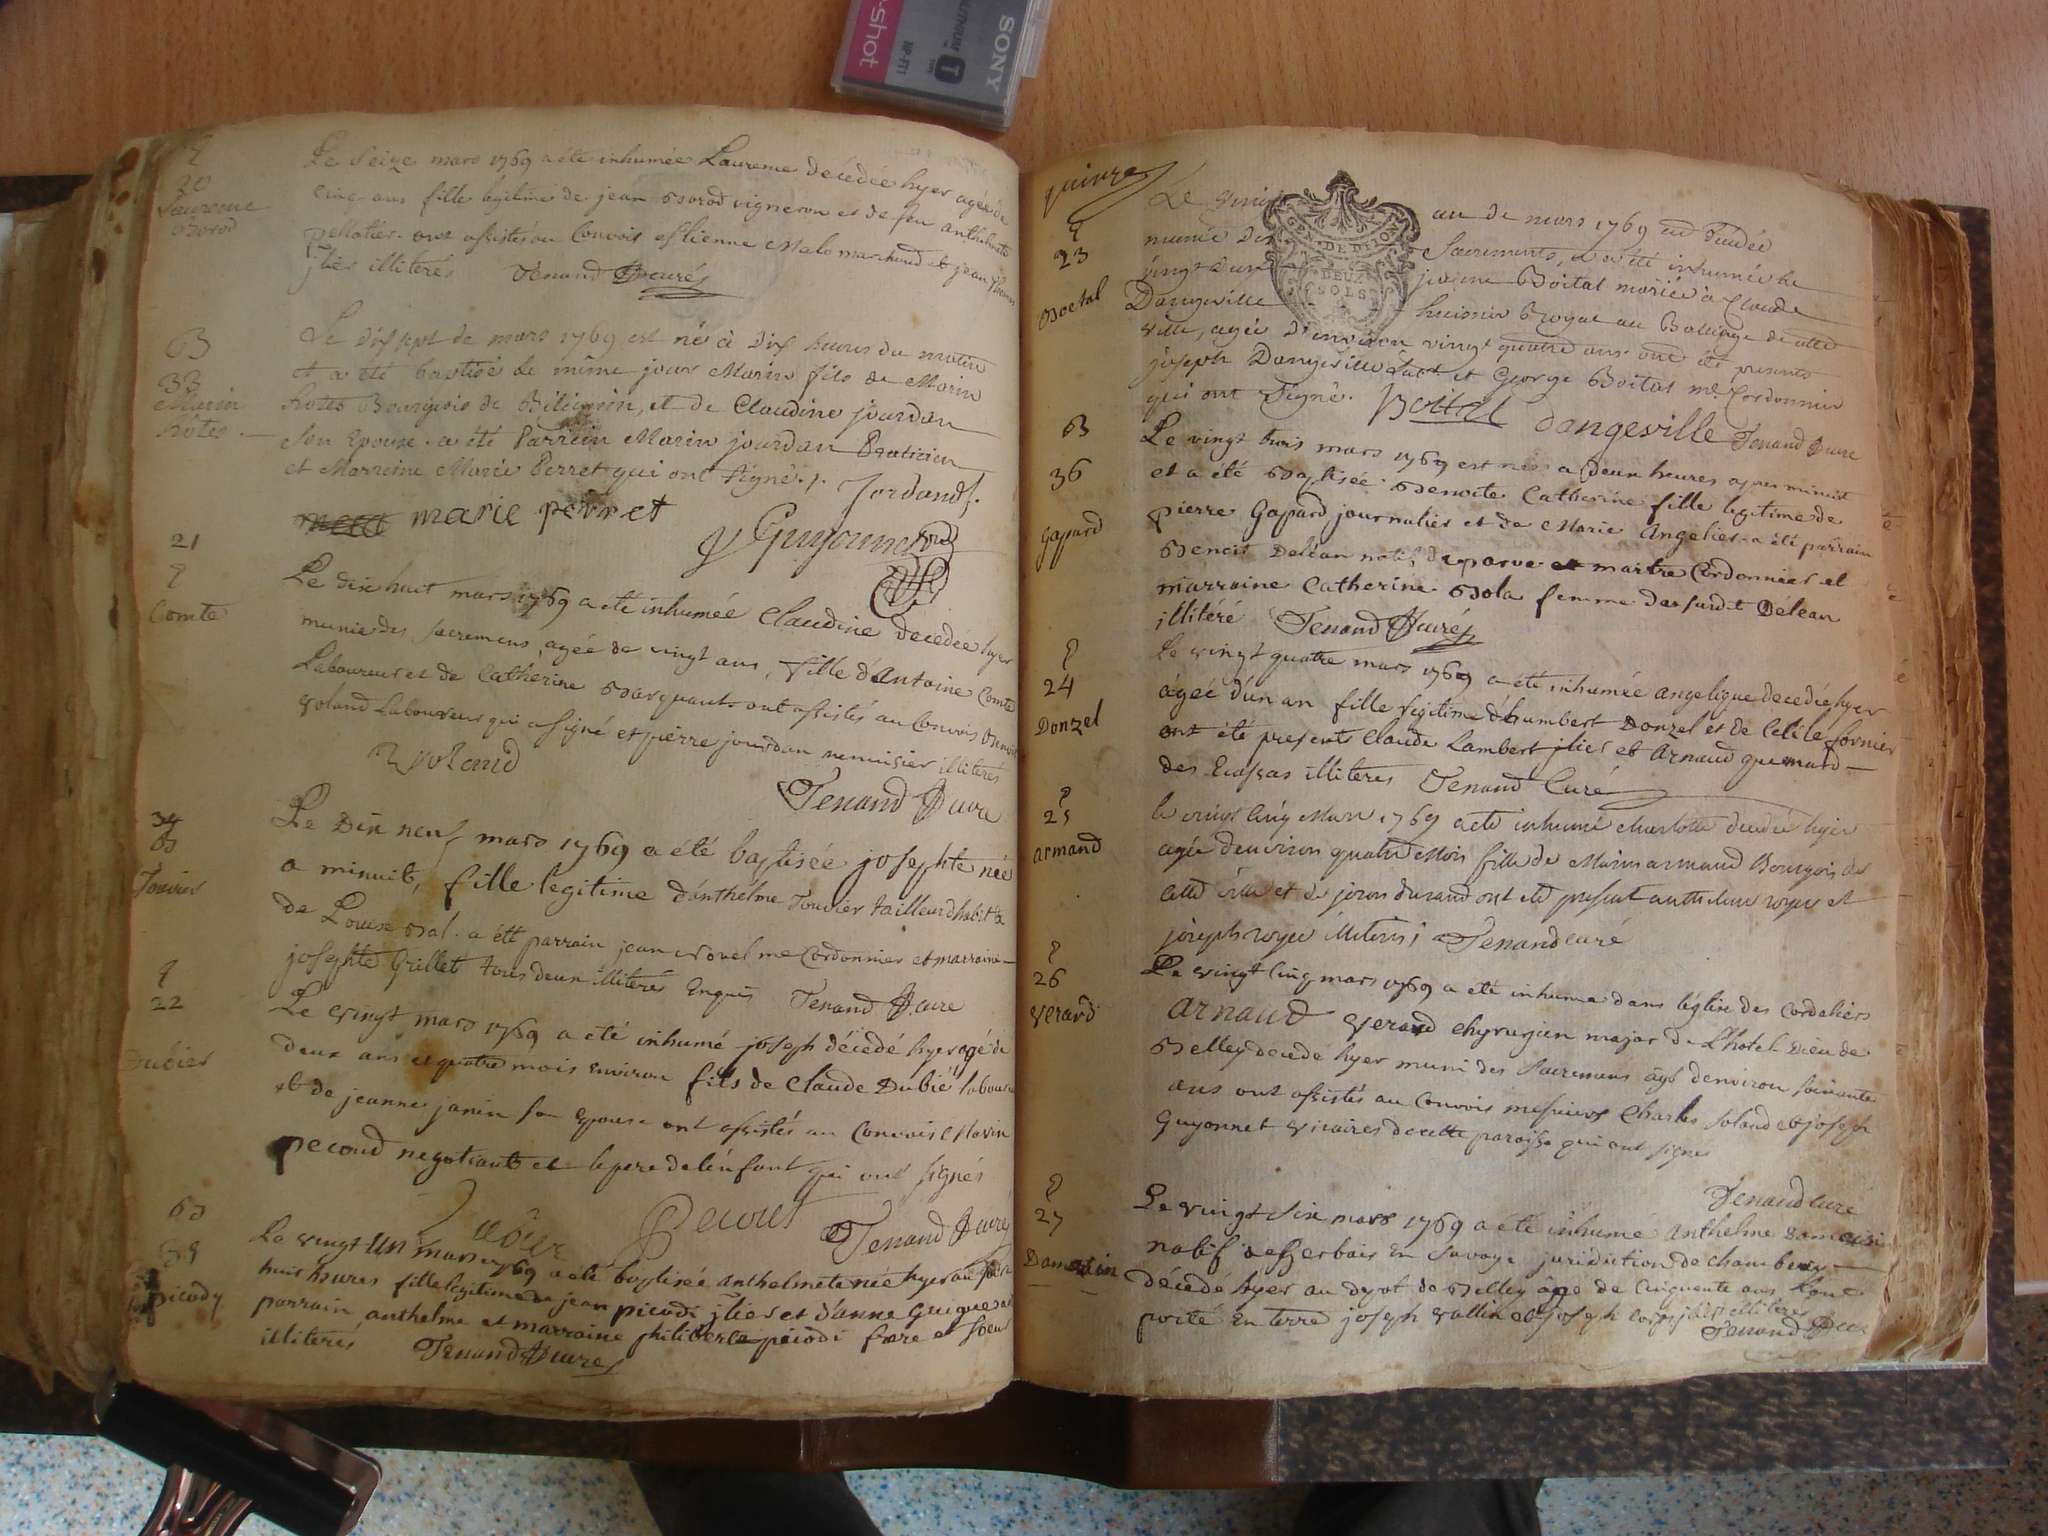 SONY
T
NP-FT1
-shot
20
Laurence
Borod
Le Seize mars 1769 a été inhumée Laurence décédée hyer agée de
cinq ans fille légitime de jean Borod vigneron et de feu anthelmette
pellatier. ont assistés au Convois estienne Malo marchand et jean
illiterés Tenand Curé
B
33
Marin
hotes
Le dix sept de mars 1769 est né à dix heures du matin
et a été baptisé le même jour Marin fils de Marin
hotes Bourgeois de et de Claudine jourdan
son Epouse. a été Parrein Marin jourdan Praticien
et Marreine Marie Perret qui ont signé./. Jordand
marie perret
Guyonnet
21
Comte
Le dix huit mars 1769 a été inhumée Claudine decedée hyer
munie des sacremens, agée de vingt ans, fille d'Antoine Comte
Laboureur et de Catherine Marquant. ont assistés au Convois Benoit
Voland Laboureur qui a signé et pierre jourdan menuisier illiterés
Voland
Tenand Curé
34
B
Touvier
Le Dix neuf mars 1769 a été baptisée josephte née
a minuit, fille legitime d'anthelme Touvier tailleur d'habit &
de Louise Bal. a été parrain jean Novel me Cordonnier et marraine
josephte Grillet tous deux illiterés Enquis Tenand Curé
22
Dubier
Le vingt mars 1769 a été inhumé joseph décédé hyer agé de
deux ans et quatre mois environ fils de Claude Dubié laboureur
et de jeanne janin son epouse ont assistés au Convois Marin
pecoud negotiant et le pere de lenfant qui ont signés
Tenand Curé
B
picody
Le vingt un mars 1769 a été baptisée anthelmete née hyer au soir
huit heures fille legitime de jean picodi et d'anne
parrain anthelme et marraine philiberte picodi frere et soeur
illiterés Tenand Curé
quinze
GEN. DE DIJON
DEUX
SOLS
23
Boetal
Le mars 1769 est decedée
munie des Sacrements, et a été inhumée le
vingt deux jeanne Boital mariée à Claude
Dangeville huissier Royal au Bailliage de cette
ville, agée d'environ vingt quatre ans ont été presents
joseph Dangeville et George Boital me. Cordonnier
qui ont signé. Boital dangeville Tenand Curé
B
36
Gapard
Le vingt trois mars 1769 est née a deux heures apres minuit
et a été Baptisée Benoite Catherine fille legitime de
pierre Gapard journalier et de Marie Angelier. a été parrain
Benoit Deléan natif de maitre Cordonnier et
marraine Catherine Bola femme dudit Déléan
illitéré Tenand Curé
24
Donzel
Le vingt quatre mars 1769 a été inhumée angelique decedée hyer
ágeé d'un an fille legitime d'humbert Donzel et de Cecile fornier
ont été presents Claude Lambert et Arnaud
des Ecassas illiteres Tenand Curé
25
armand
le vingt cinq Mars 1769 a eté inhumé charlotte decedée hyer
agée denviron quatre Mois fille de Marin armand Bourgois de
cette ville et de durand ont eté present anthelme royer et
joseph royer illiteres Tenand curé
26
Verard
Le vingt cinq mars 1769 a eté inhumé dans léglise des Cordeliers
arnaud Verard chyrurgien major de L'hotel Dieu de
Belley decede hyer muni des Sacremens âgé denviron soixante
ans ont assistés au Convois messieurs Charles Soland et joseph
Guyonnet vicaires de cette paroisse qui ont signés
Tenand curé
27
Damesin
Le vingt six mars 1769 a été inhumé anthelme
natif de Gerbais En Savoye juridiction de chambery
décédé hyer au depot de Belley âgé de Cinquente ans L'ont
porté En terre joseph vallin et joseph illiteres
Tenand Curé